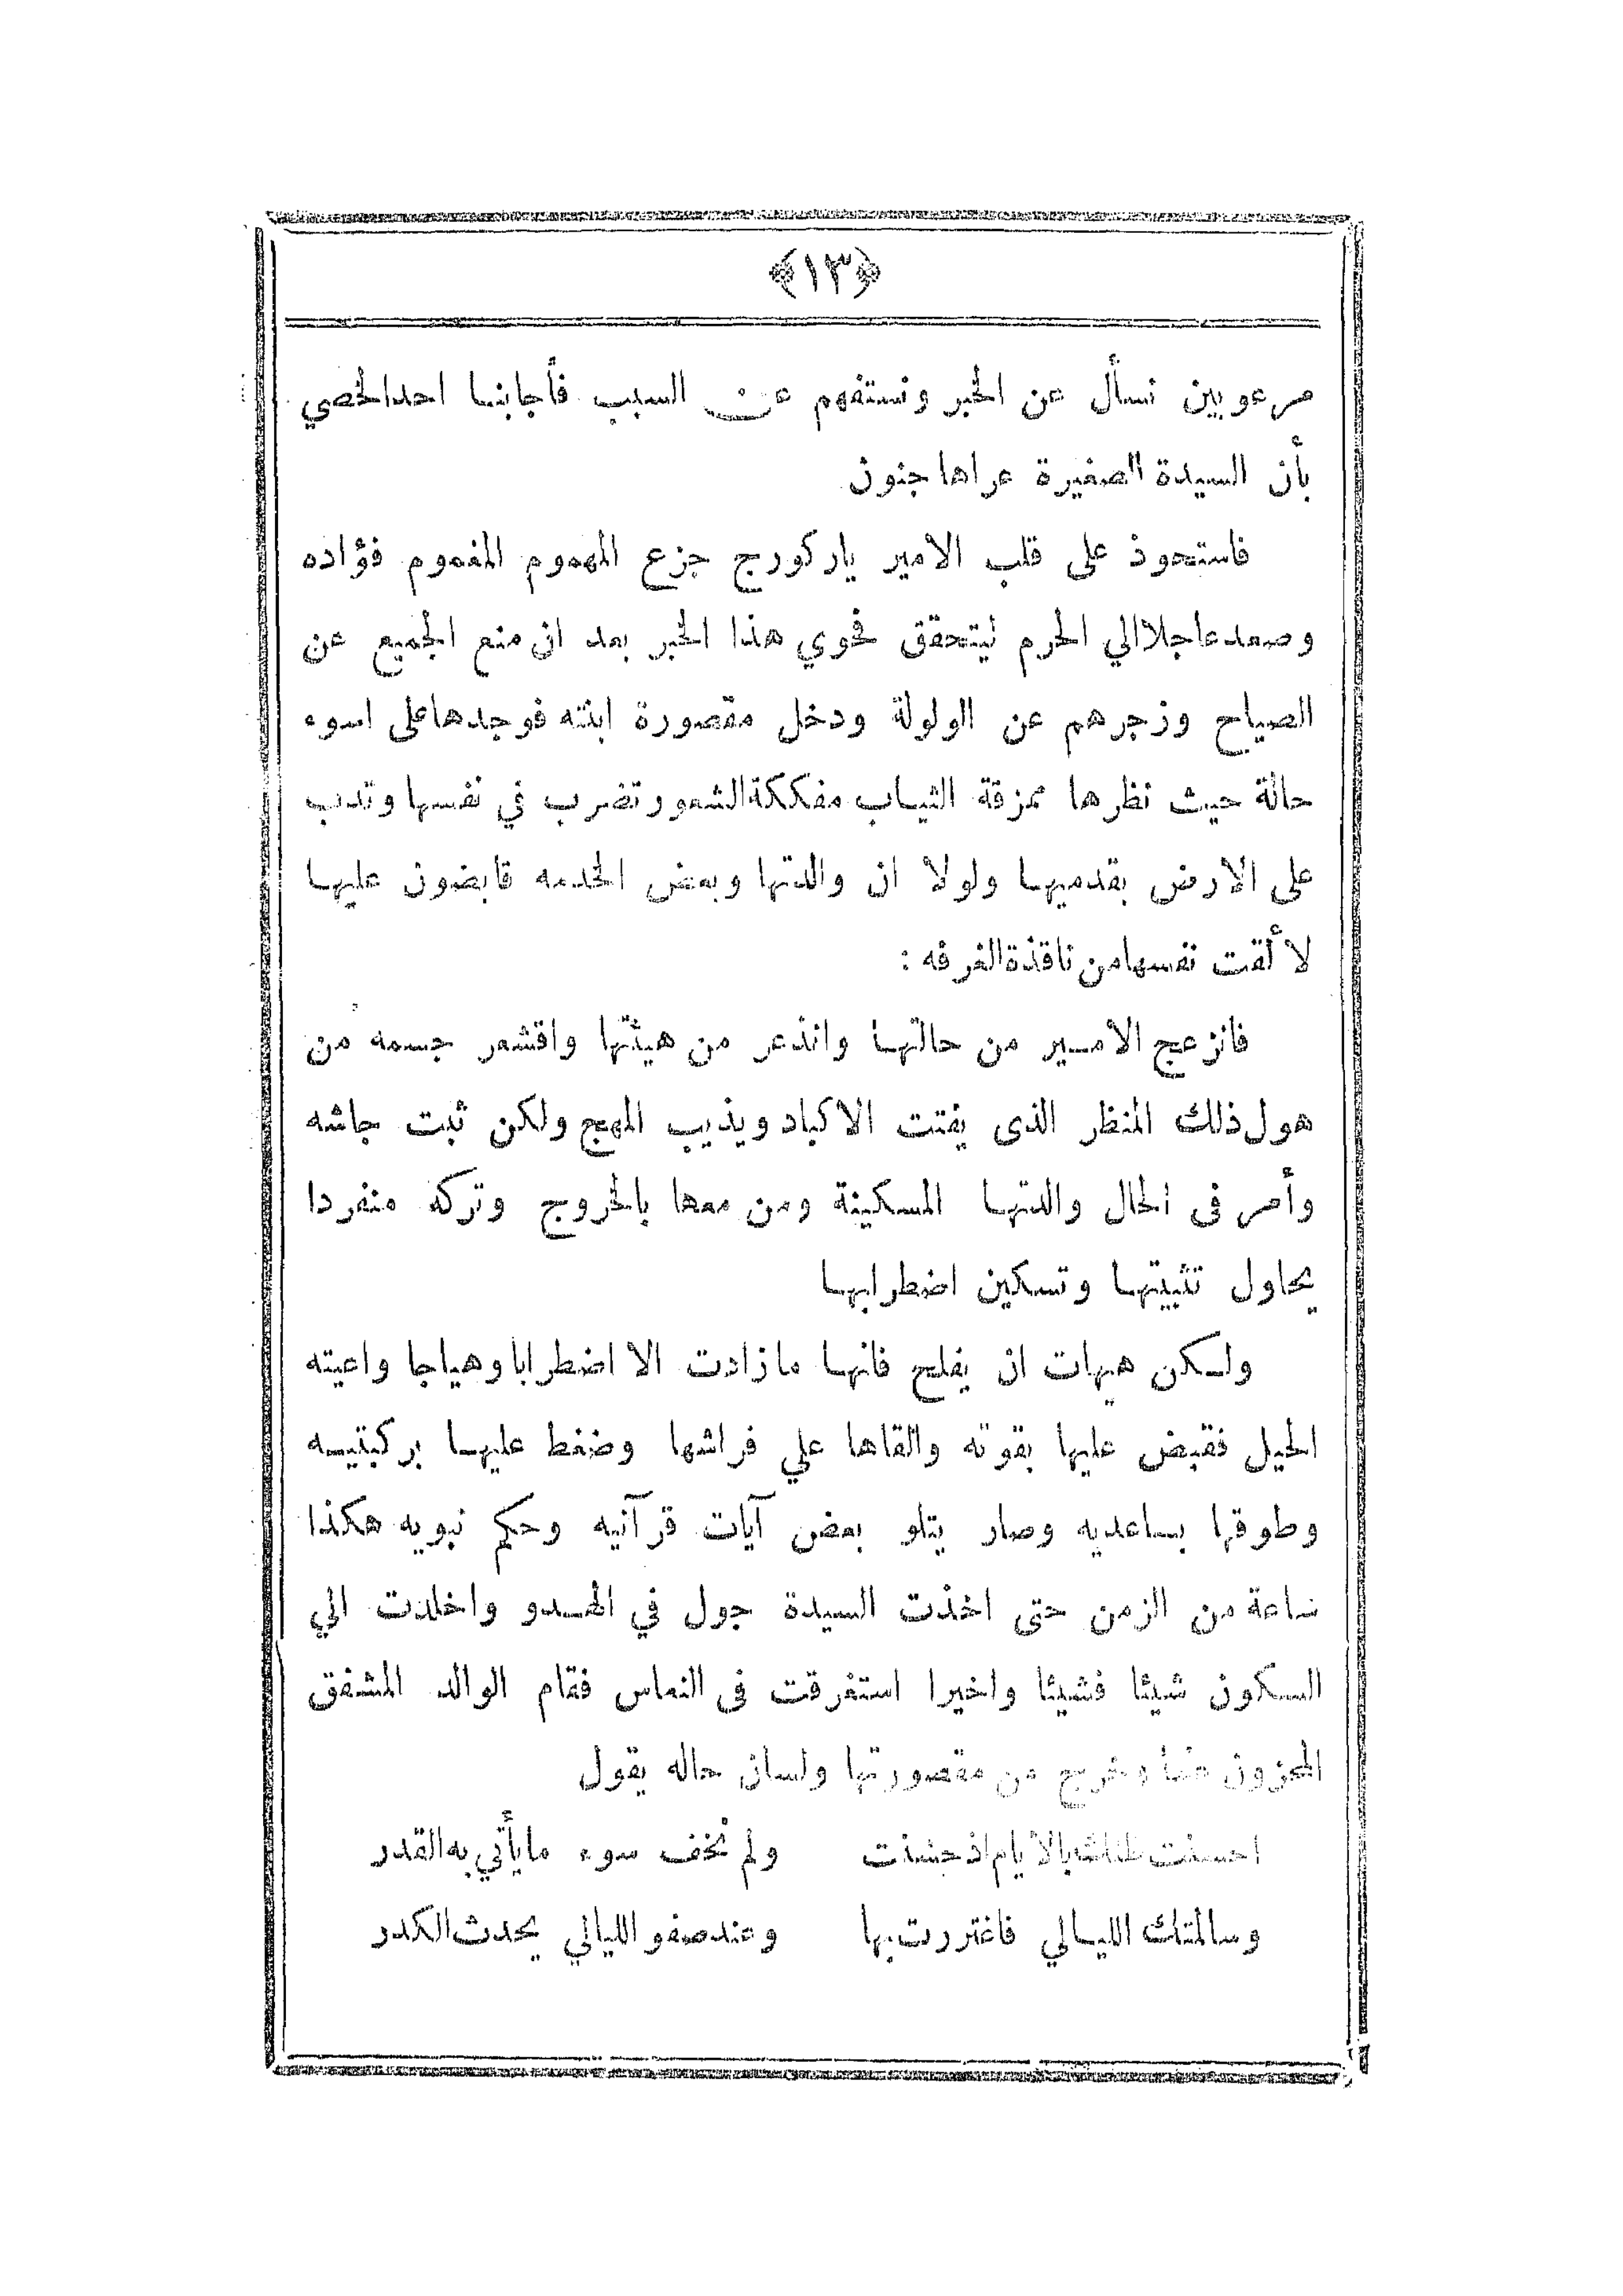 ﴿١٣﴾
مرعوبين نسأل عن الخبر ونستفهم عن السبب فأجابنا احد الخصي
بأن السيدة الصغيرة عراها جنون
فاستحوذ على قلب الامير ياركورج جزع المهموم المغموم فؤاده
وصعد عاجلا الي الحرم ليتحقق فحوي هذا الخبر بعد ان منع الجميع عن
الصياح وزجرهم عن الولولة ودخل مقصورة ابنته فوجدها على اسوء
حالة حيث نظرها ممزقة الثياب مفككة الشعور تضرب في نفسها وتدب
على الارض بقدميها ولولا ان والدتها وبعض الخدمه قابضون عليها
لألقت نفسها من نافذة الغرفه :
فانزعج الامير من حالتها وانذعر من هيئتها واقشعر جسمه من
هول ذلك المنظر الذى يفتت الاكباد ويذيب المهج ولكن ثبت جاشه
وأمر فى الحال والدتها المسكينة ومن معها بالخروج وتركه منفردا
يحاول تثبيتها وتسكين اضطرابها
ولكن هيهات ان يفلح فانها ما زادت الا اضطرابا وهياجا واعيته
الحيل فقبض عليها بقوته والقاها علي فراشها وضغط عليها بركبتيه
وطوقها بساعديه وصار يتلو بعض آيات قرآنيه وحكم نبويه هكذا
ساعة من الزمن حتى اخذت السيدة جول في الهدو واخلدت الي
السكون شيئا فشيئا واخيرا استغرقت فى النعاس فقام الوالد المشفق
المحزون وخرج من مقصورتها ولسان حاله يقول
احسنت ظنك بالايام اذ حسنت ولم تخف سوء ما يأتي به القدر
وسالمتك الليالي فاغتررت بها وعند صفو الليالي يحدث الكدر